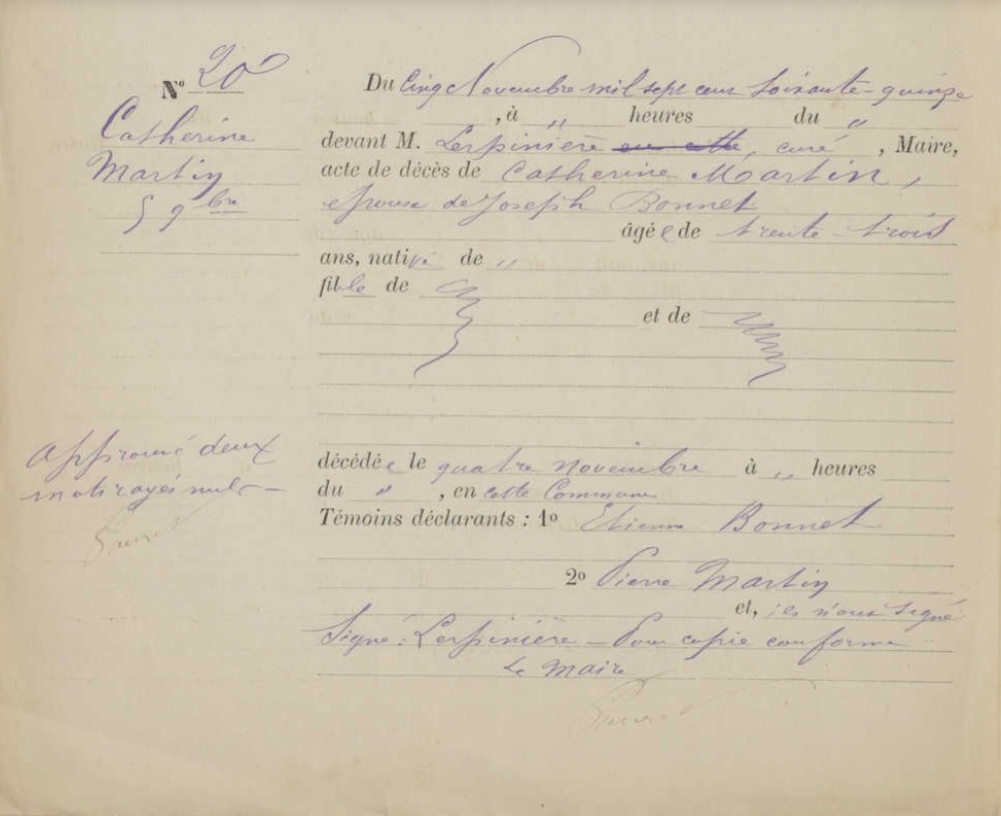 Nº 20
Catherine
Martin
5 9bre
Du Cinq Novembre mil sept cent soixante-quinze
, à " heures du "
devant M. Lerpinière, curé, Maire,
acte de décès de Catherine Martin,
epouse de Joseph Bonnet
âgée de trente-trois
ans, native de "
fille de
et de
Approuvé deux
mots rayés nuls -
décédée le quatre novembre à " heures
du ", en cette Commune
Témoins déclarants : 1º Etienne Bonnet
2º Pierre Martin
et, ils n'ont signé
Signé : Lerpinière - Pour copie conforme
Le Maire